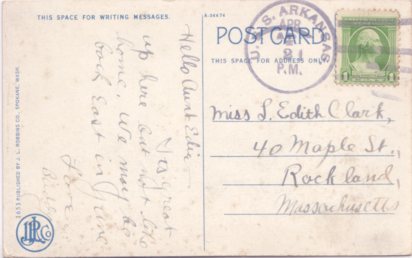 THIS SPACE FOR WRITING MESSAGES.
Hello Aunt Edie
Tis great
up here but not like
home. We may be
back East in June
Love
1653 PUBLISHED BY J. L. ROBBINS CO. SPOKANE, WASH.
JLR Co
A-36474
POSTCARD
THIS SPACE FOR ADDRESS ONLY
U.S.S. ARKANSAS
APR
21
P.M.
1
Miss L. Edith Clark,
40 Maple St.,
Rockland,
Massachusetts